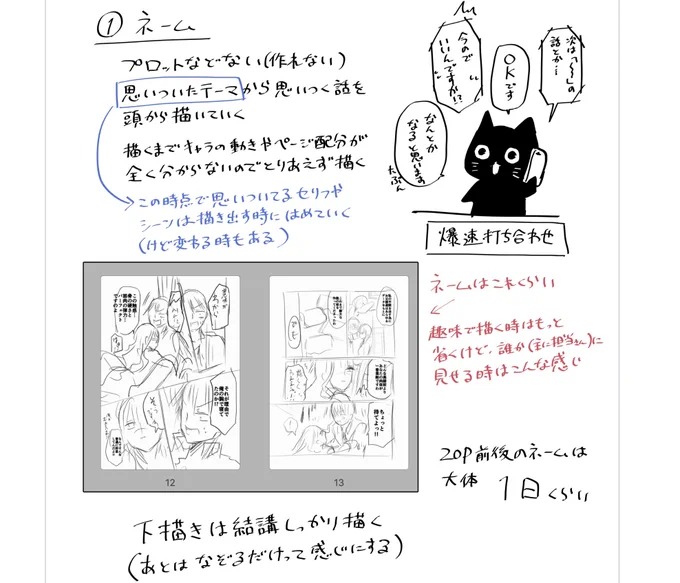 ① ネーム
プロットなどない(作れない)
思いついたテーマから思いつく話を
頭から描いていく
描くまでキャラの動きやページ配分が
全く分からないのでとりあえず描く
この時点で思いついてるセリフや
シーンは描き出す時にはめていく
(けど変わる時もある)
次は「〜〜」の
話とか…
OKです
今ので
いいんですか!?
なんとか
なると思います
たぶん
爆速打ち合わせ
ネームはこれくらい
趣味で描く時はもっと
省くけど、誰か(主に担当さん)に
見せる時はこんな感じ
それが理由で
俺の胸で寝て
たのか!!
ちょっと
待てよっ!!
12
13
20P前後のネームは
大体 1日くらい
下描きは結講しっかり描く
(あとは なぞるだけって感じにする)